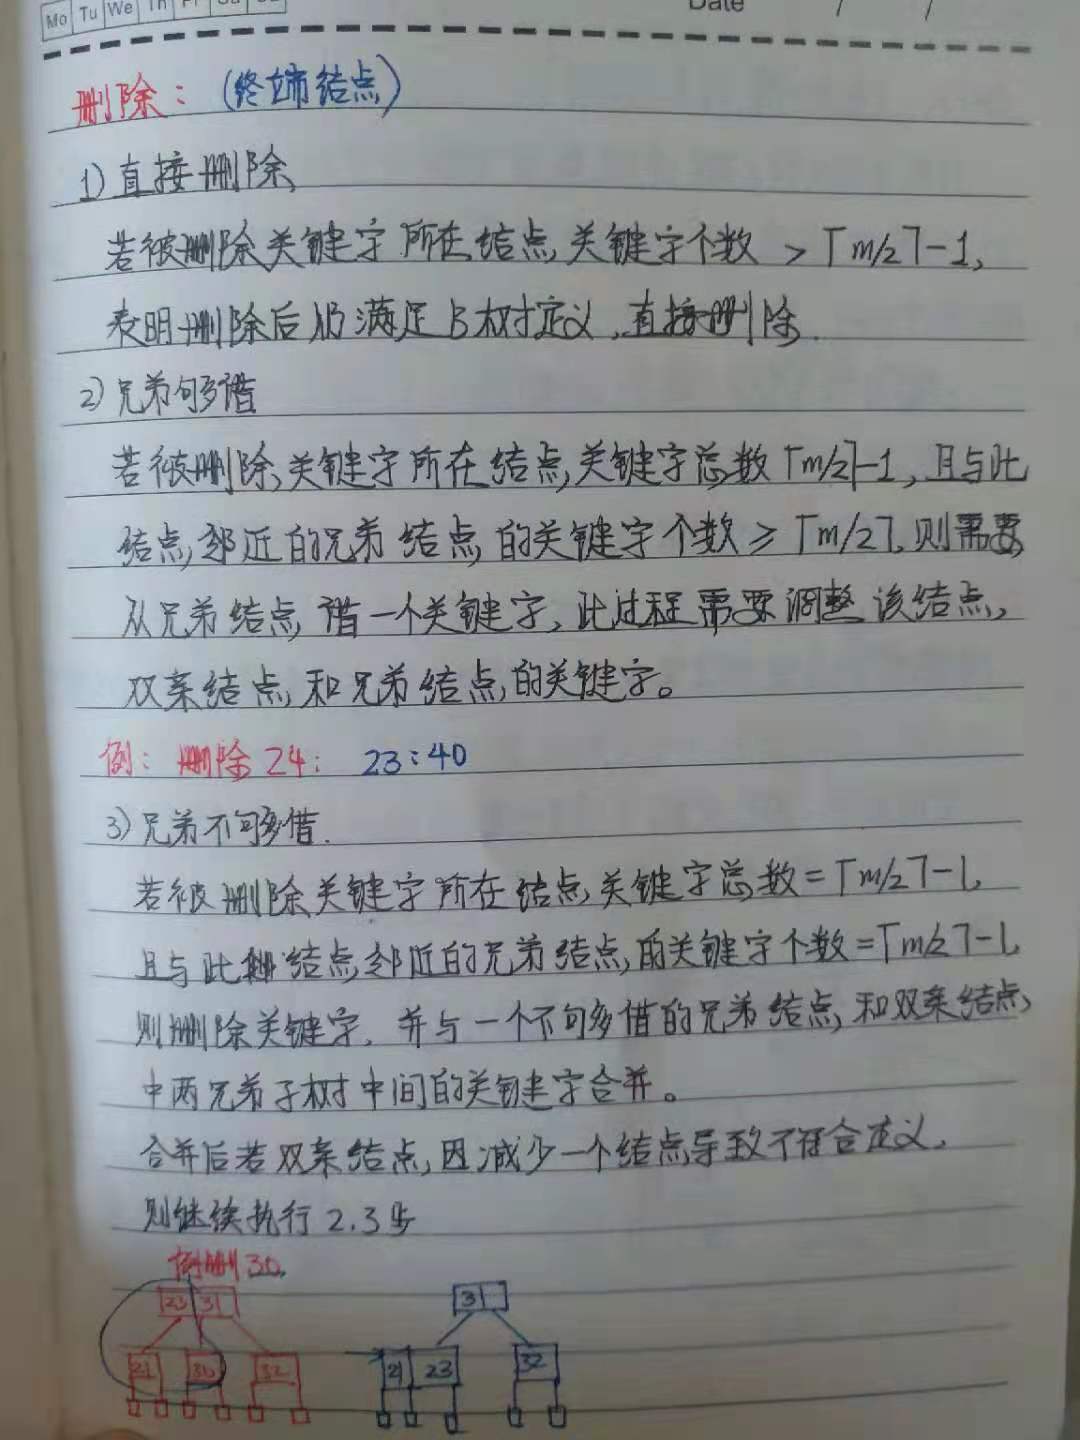 Mo Tu We Th Fr Sa Su
Date / /
删除：（终端结点）
1) 直接删除
若被删除关键字所在结点关键字个数 > ⌈m/2⌉-1,
表明删除后仍满足B树定义,直接删除.
2) 兄弟够借
若被删除关键字所在结点关键字总数⌈m/2⌉-1,且与此
结点邻近的兄弟结点的关键字个数≥⌈m/2⌉,则需要
从兄弟结点借一个关键字,此过程需要调整该结点,
双亲结点和兄弟结点的关键字。
例：删除24： 23:40
3) 兄弟不够借.
若被删除关键字所在结点关键字总数=⌈m/2⌉-1,
且与此结点邻近的兄弟结点的关键字个数=⌈m/2⌉-1,
则删除关键字,并与一个不够借的兄弟结点和双亲结点
中两兄弟子树中间的关键字合并。
合并后若双亲结点因减少一个结点导致不符合定义,
则继续执行2.3步
例删30.
23 31
3
21 30 32
21 23 32